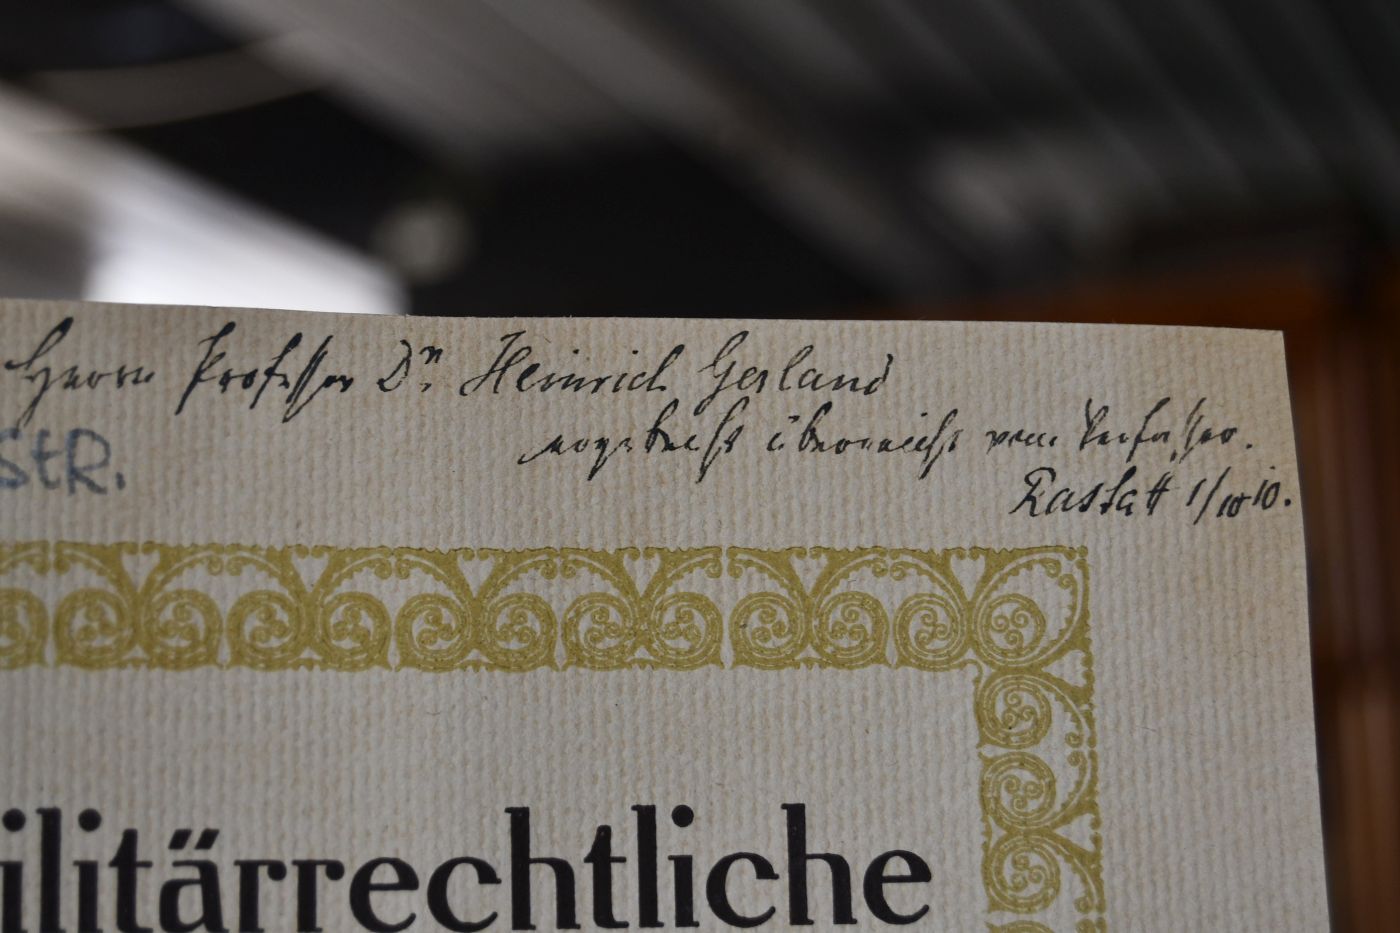 Herrn Professor Dr. Heinrich Gerland
ergebenst überreicht vom Verfasser.
StR.
Rastatt 1/10 10.
ilitärrechtliche